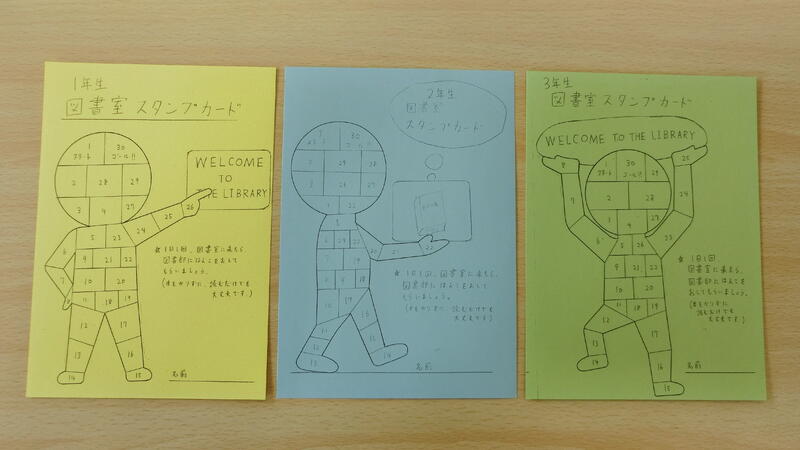 1年生
図書室 スタンプカード
WELCOME
TO
THE LIBRARY
1 30
スタート ゴール!!
2 28 29
3 4 27
26
25
24
5 23
6 9 21 22
7
8 10 20
11 18 19
12 17
13 16
14 15
※1日1回、図書室に来たら、
図書部にはんこをおして
もらいましょう。
(本をかりずに、読むだけでも
大丈夫です。)
名前
2年生
図書室
スタンプカード
1 30
スタート ゴール!!
2 29 28
3 26 27
4 25
5
6 24 23 22
20 21 22
※1日1回、図書室に来たら、
図書部にはんこをおして
もらいましょう。
(本をかりずに、読むだけでも
大丈夫です。)
名前
3年生
図書室スタンプカード
WELCOME TO THE LIBRARY
8 25
1 30
スタート ゴール!!
7 2 28 29
24
3 4 27
6 5 26 23
9 21 22
10 20
11 18 19
12 17
13 14
15 16
※1日1回、
図書室に来たら、
図書部にはんこを
おしてもらいましょう。
(本をかりずに、
読むだけでも
大丈夫です)
名前